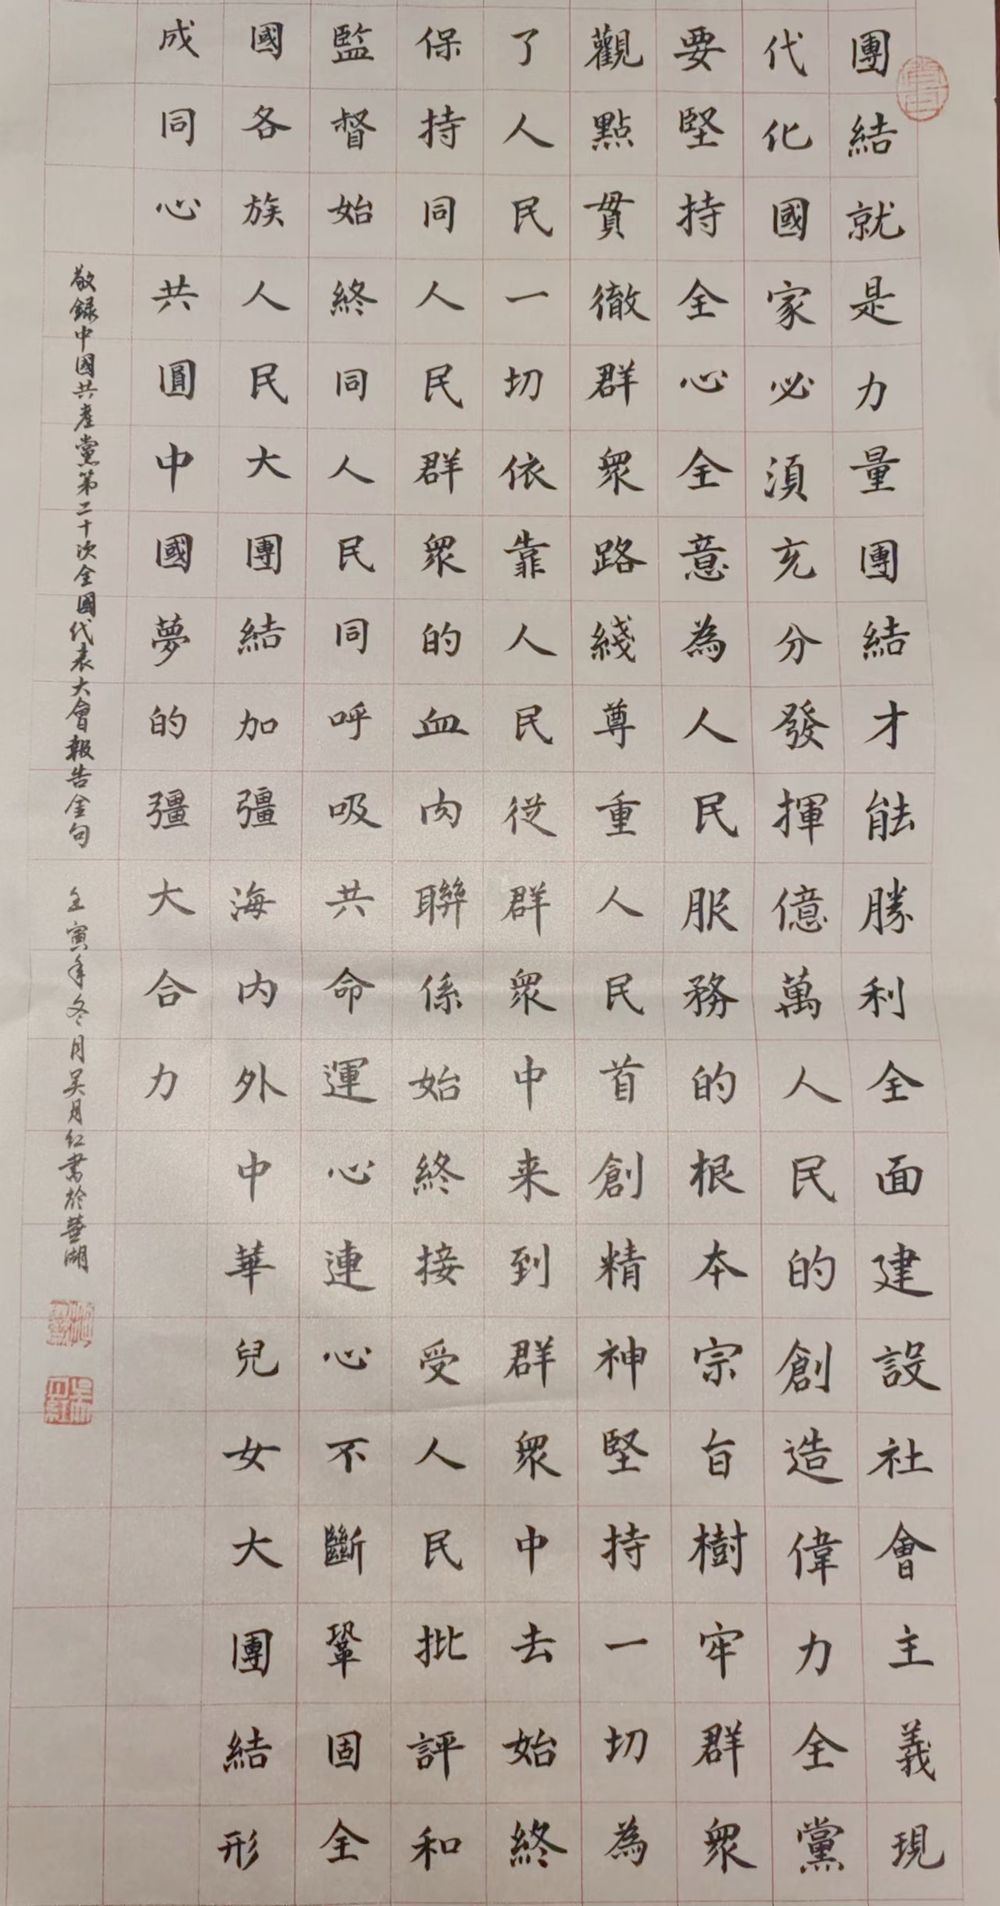 團結就是力量團結才能勝利全面建設社會主義現
代化國家必須充分發揮億萬人民的創造偉力全黨
要堅持全心全意為人民服務的根本宗旨樹牢群眾
觀點貫徹群眾路綫尊重人民首創精神堅持一切為
了人民一切依靠人民從群眾中来到群眾中去始終
保持同人民群眾的血肉聯係始終接受人民批評和
監督始終同人民同呼吸共命運心連心不斷鞏固全
國各族人民大團結加彊海內外中華兒女大團結形
成同心共圓中國夢的彊大合力
敬録中國共產黨第二十次全國代表大會報告金句 壬寅年冬月吴月紅書於芸湖